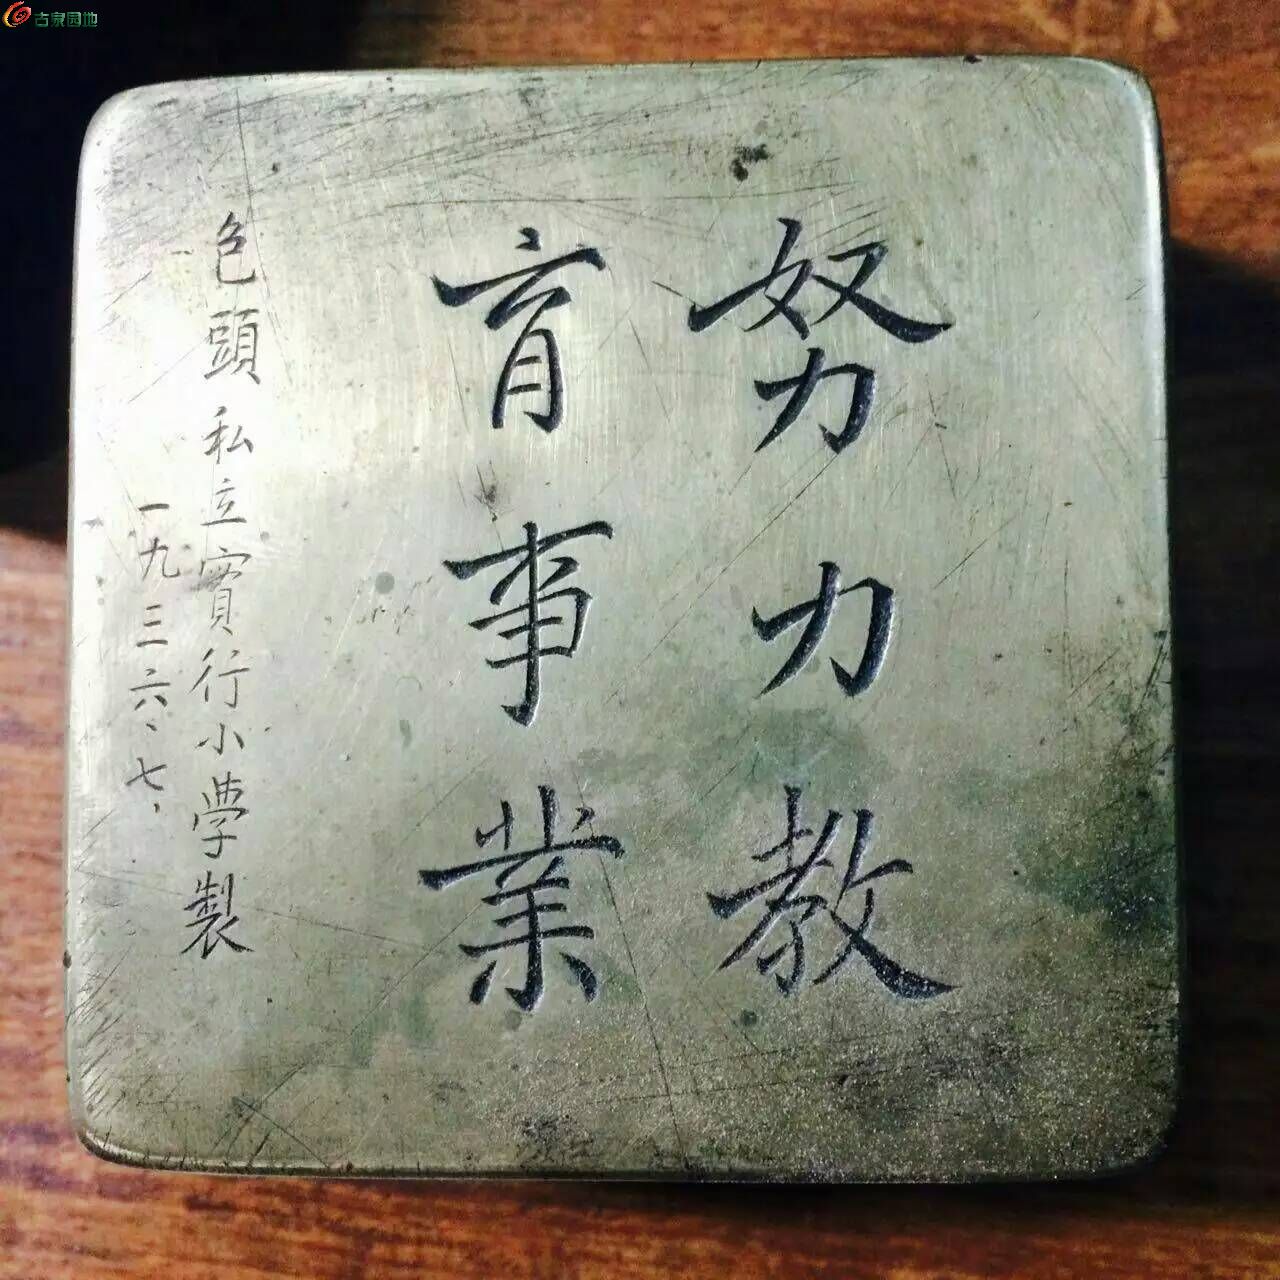 努力教
育事業
色頭私立實行小學製
一九三六、七、
古泉园地